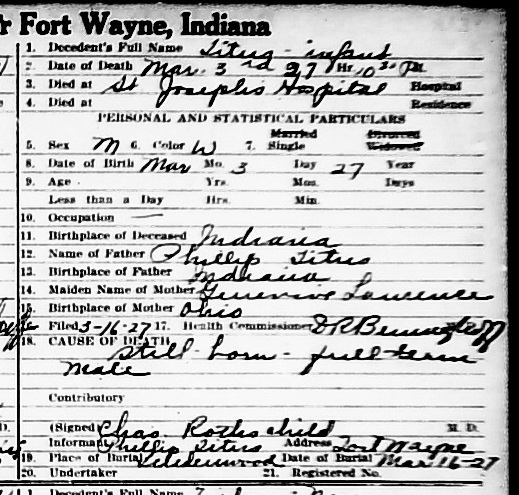 r Fort Wayne, Indiana
1. Decedent's Full Name Titus - infant
2. Date of Death Mar. 3rd 27 Hr. 10 30 P.M.
3. Died at St Joseph's Hospital Hospital
4. Died at Residence
PERSONAL AND STATISTICAL PARTICULARS
Married Divorced
5. Sex M 6. Color W 7. Single Widowed
8. Date of Birth Mar Mo. 3 Day 27 Year
9. Age Yrs. Mos. Days
Less than a Day Hrs. Min.
10. Occupation —
11. Birthplace of Deceased Indiana
12. Name of Father Phillip Titus
13. Birthplace of Father Indiana
14. Maiden Name of Mother Genevive Lawrence
15. Birthplace of Mother Ohio
16. Filed 3-16-27 17. Health Commissioner DR
18. CAUSE OF DEATH
Still-born - full-term
male
Contributory
(Signed) Chas. Rothschild M. D.
Informant Phillip Titus Address Fort Wayne
19. Place of Burial Lindenwood Date of Burial Mar 16-27
20. Undertaker 21. Registered No.
1. Decedent's Full Name